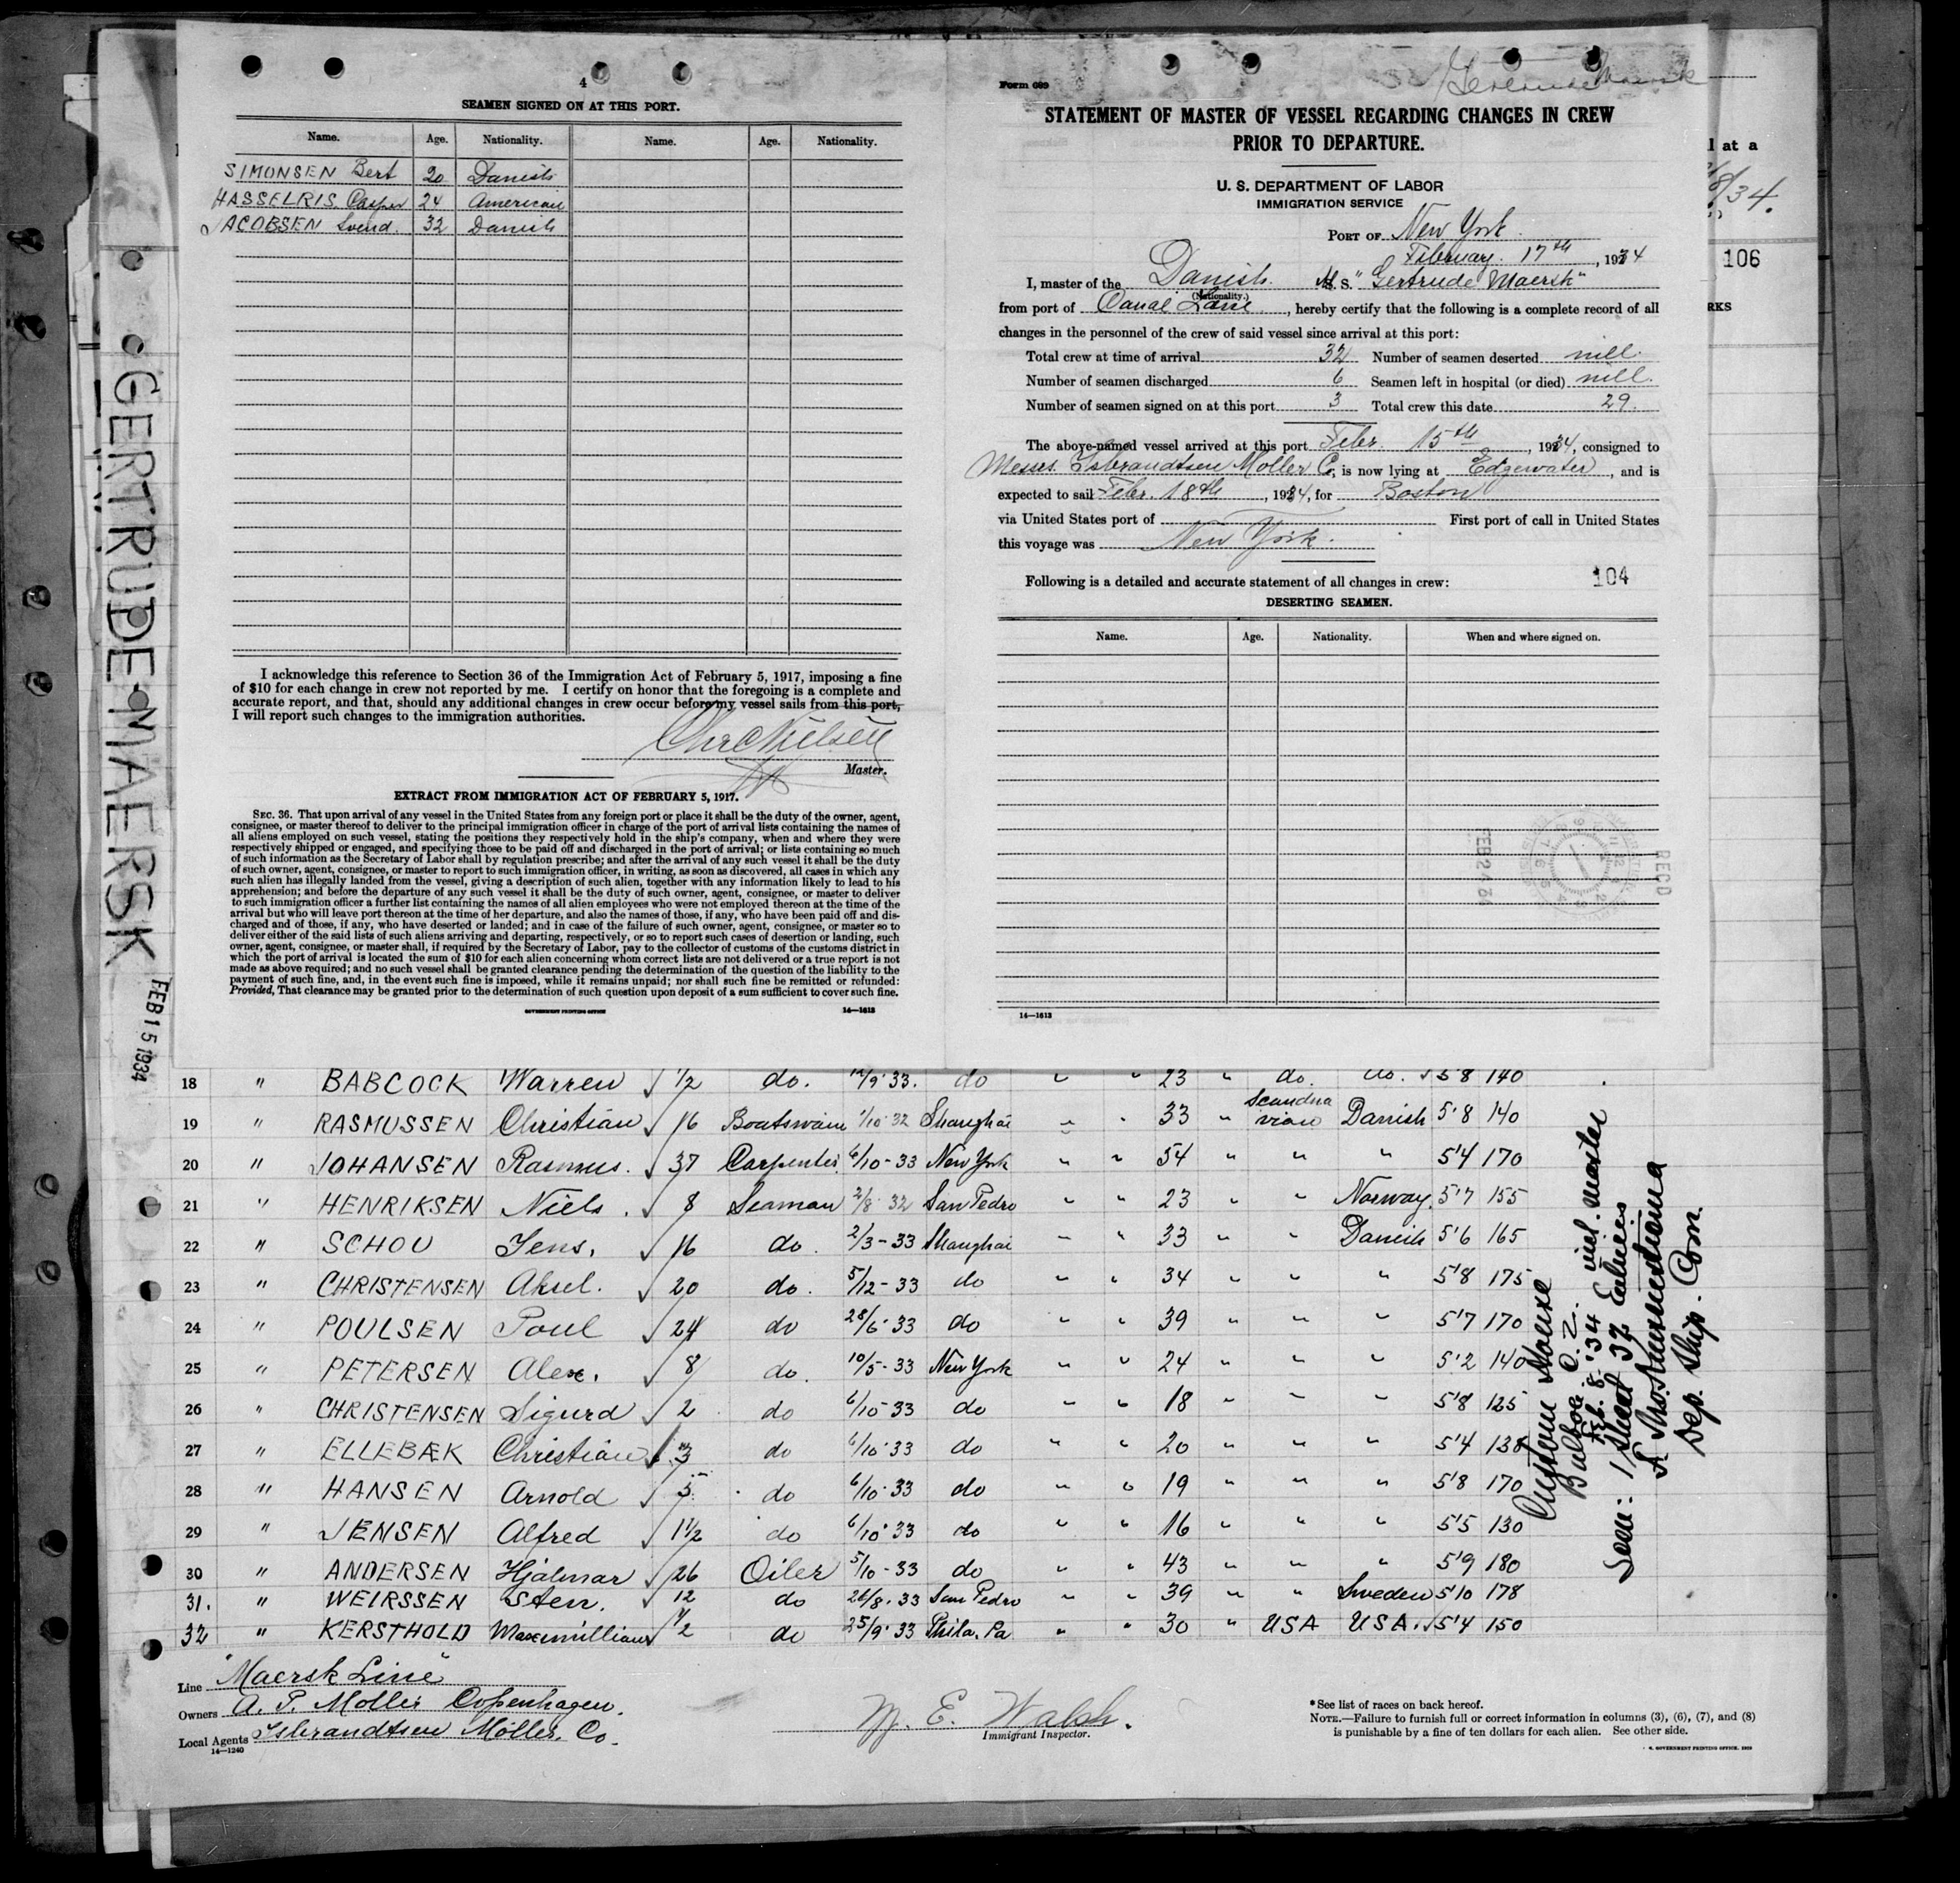 4
SEAMEN SIGNED ON AT THIS PORT.
Name. Age. Nationality. Name. Age. Nationality.
SIMONSEN Bert 20 Danish
HASSELRIS Casper 24 American
JACOBSEN Svend. 32 Danish
I acknowledge this reference to Section 36 of the Immigration Act of February 5, 1917, imposing a fine
of $10 for each change in crew not reported by me. I certify on honor that the foregoing is a complete and
accurate report, and that, should any additional changes in crew occur before my vessel sails from this port,
I will report such changes to the immigration authorities.
Chr C Nielsen
Master.
EXTRACT FROM IMMIGRATION ACT OF FEBRUARY 5, 1917.
SEC. 36. That upon arrival of any vessel in the United States from any foreign port or place it shall be the duty of the owner, agent,
consignee, or master thereof to deliver to the principal immigration officer in charge of the port of arrival lists containing the names of
all aliens employed on such vessel, stating the positions they respectively hold in the ship's company, when and where they were
respectively shipped or engaged, and specifying those to be paid off and discharged in the port of arrival; or lists containing so much
of such information as the Secretary of Labor shall by regulation prescribe; and after the arrival of any such vessel it shall be the duty
of such owner, agent, consignee, or master to report to such immigration officer, in writing, as soon as discovered, all cases in which any
such alien has illegally landed from the vessel, giving a description of such alien, together with any information likely to lead to his
apprehension; and before the departure of any such vessel it shall be the duty of such owner, agent, consignee, or master to deliver
to such immigration officer a further list containing the names of all alien employees who were not employed thereon at the time of the
arrival but who will leave port thereon at the time of her departure, and also the names of those, if any, who have been paid off and dis-
charged and of those, if any, who have deserted or landed; and in case of the failure of such owner, agent, consignee, or master so to
deliver either of the said lists of such aliens arriving and departing, respectively, or so to report such cases of desertion or landing, such
owner, agent, consignee, or master shall, if required by the Secretary of Labor, pay to the collector of customs of the customs district in
which the port of arrival is located the sum of $10 for each alien concerning whom correct lists are not delivered or a true report is not
made as above required; and no such vessel shall be granted clearance pending the determination of the question of the liability to the
payment of such fine, and, in the event such fine is imposed, while it remains unpaid; nor shall such fine be remitted or refunded:
Provided, That clearance may be granted prior to the determination of such question upon deposit of a sum sufficient to cover such fine.
GOVERNMENT PRINTING OFFICE 14—1613
Form 689
Gertrude Maersk
STATEMENT OF MASTER OF VESSEL REGARDING CHANGES IN CREW
PRIOR TO DEPARTURE.
U. S. DEPARTMENT OF LABOR
IMMIGRATION SERVICE
PORT OF New York
February. 17th, 1934
I, master of the Danish. M. S. "Gertrude Maersk"
(Nationality.)
from port of Canal Zone, hereby certify that the following is a complete record of all
changes in the personnel of the crew of said vessel since arrival at this port:
Total crew at time of arrival 32 Number of seamen deserted nill.
Number of seamen discharged 6 Seamen left in hospital (or died) nill.
Number of seamen signed on at this port 3 Total crew this date 29.
The above-named vessel arrived at this port Febr. 15th, 1934, consigned to
Messrs. Isbrandtsen Moller Co, is now lying at Edgewater, and is
expected to sail Febr. 18th, 1934, for Boston
via United States port of First port of call in United States
this voyage was New York.
Following is a detailed and accurate statement of all changes in crew: 104
DESERTING SEAMEN.
Name. Age. Nationality. When and where signed on.
REC'D
FEB 2
14—1613
l at a
8/34.
106
RKS
GERTRUDE MAERSK
FEB 15 1934
18 " BABCOCK Warren √ 1/2 do. 12/9-33. do " " 23 " do. do. √ 5'8 140
19 " RASMUSSEN Christian √ 16 Boatswain 1/10-32 Shanghai " " 33 " Scandinavian Danish 5'8 140
20 " JOHANSEN Rasmus. √ 37 Carpenter 6/10-33 New York " " 54 " " " 5'4 170
21 " HENRIKSEN Niels. √ 8 Seaman 2/8-32 San Pedro " " 23 " " Norway. 5'7 155
22 " SCHOU Jens. √ 16 do. 2/3-33 Shanghai " " 33 " " Danish 5'6 165
23 " CHRISTENSEN Aksel. √ 20 do. 5/12-33 do " " 34 " " " 5'8 175
24 " POULSEN Poul √ 24 do 28/6-33 do " " 39 " " " 5'7 170
25 " PETERSEN Alex. √ 8 do. 10/5-33 New York " " 24 " " " 5'2 140
26 " CHRISTENSEN Sigurd √ 2 do 6/10-33 do " " 18 " " " 5'8 125
27 " ELLEBÆK Christian √ 3 do 6/10-33 do " " 20 " " " 5'4 138
28 " HANSEN Arnold √ 5 do 6/10-33 do " " 19 " " " 5'8 170
29 " JENSEN Alfred √ 1 1/2 do 6/10-33 do " " 16 " " " 5'5 130
30 " ANDERSEN Hjalmar √ 26 Oiler 5/10-33 do " " 43 " " " 5'9 180
31. " WEIRSSEN Sten. √ 12 do 26/8-33 San Pedro " " 39 " " Sweden 5'10 178
32 " KERSTHOLD Maxemillian √ 1/2 do 25/9-33 Phila. Pa " " 30 " USA USA. √ 5'4 150
Custom House
Balboa C. Z.
Feb. 8. '34 incl. master
Seen: 1 sheet 32 Entries
Dep. Ship. Com.
Line "Maersk Line"
Owners A. P. Moller Copenhagen.
Local Agents Isbrandtsen Möller. Co.
14—1240
M. E. Walsh.
Immigrant Inspector.
*See list of races on back hereof.
NOTE.—Failure to furnish full or correct information in columns (3), (6), (7), and (8)
is punishable by a fine of ten dollars for each alien. See other side.